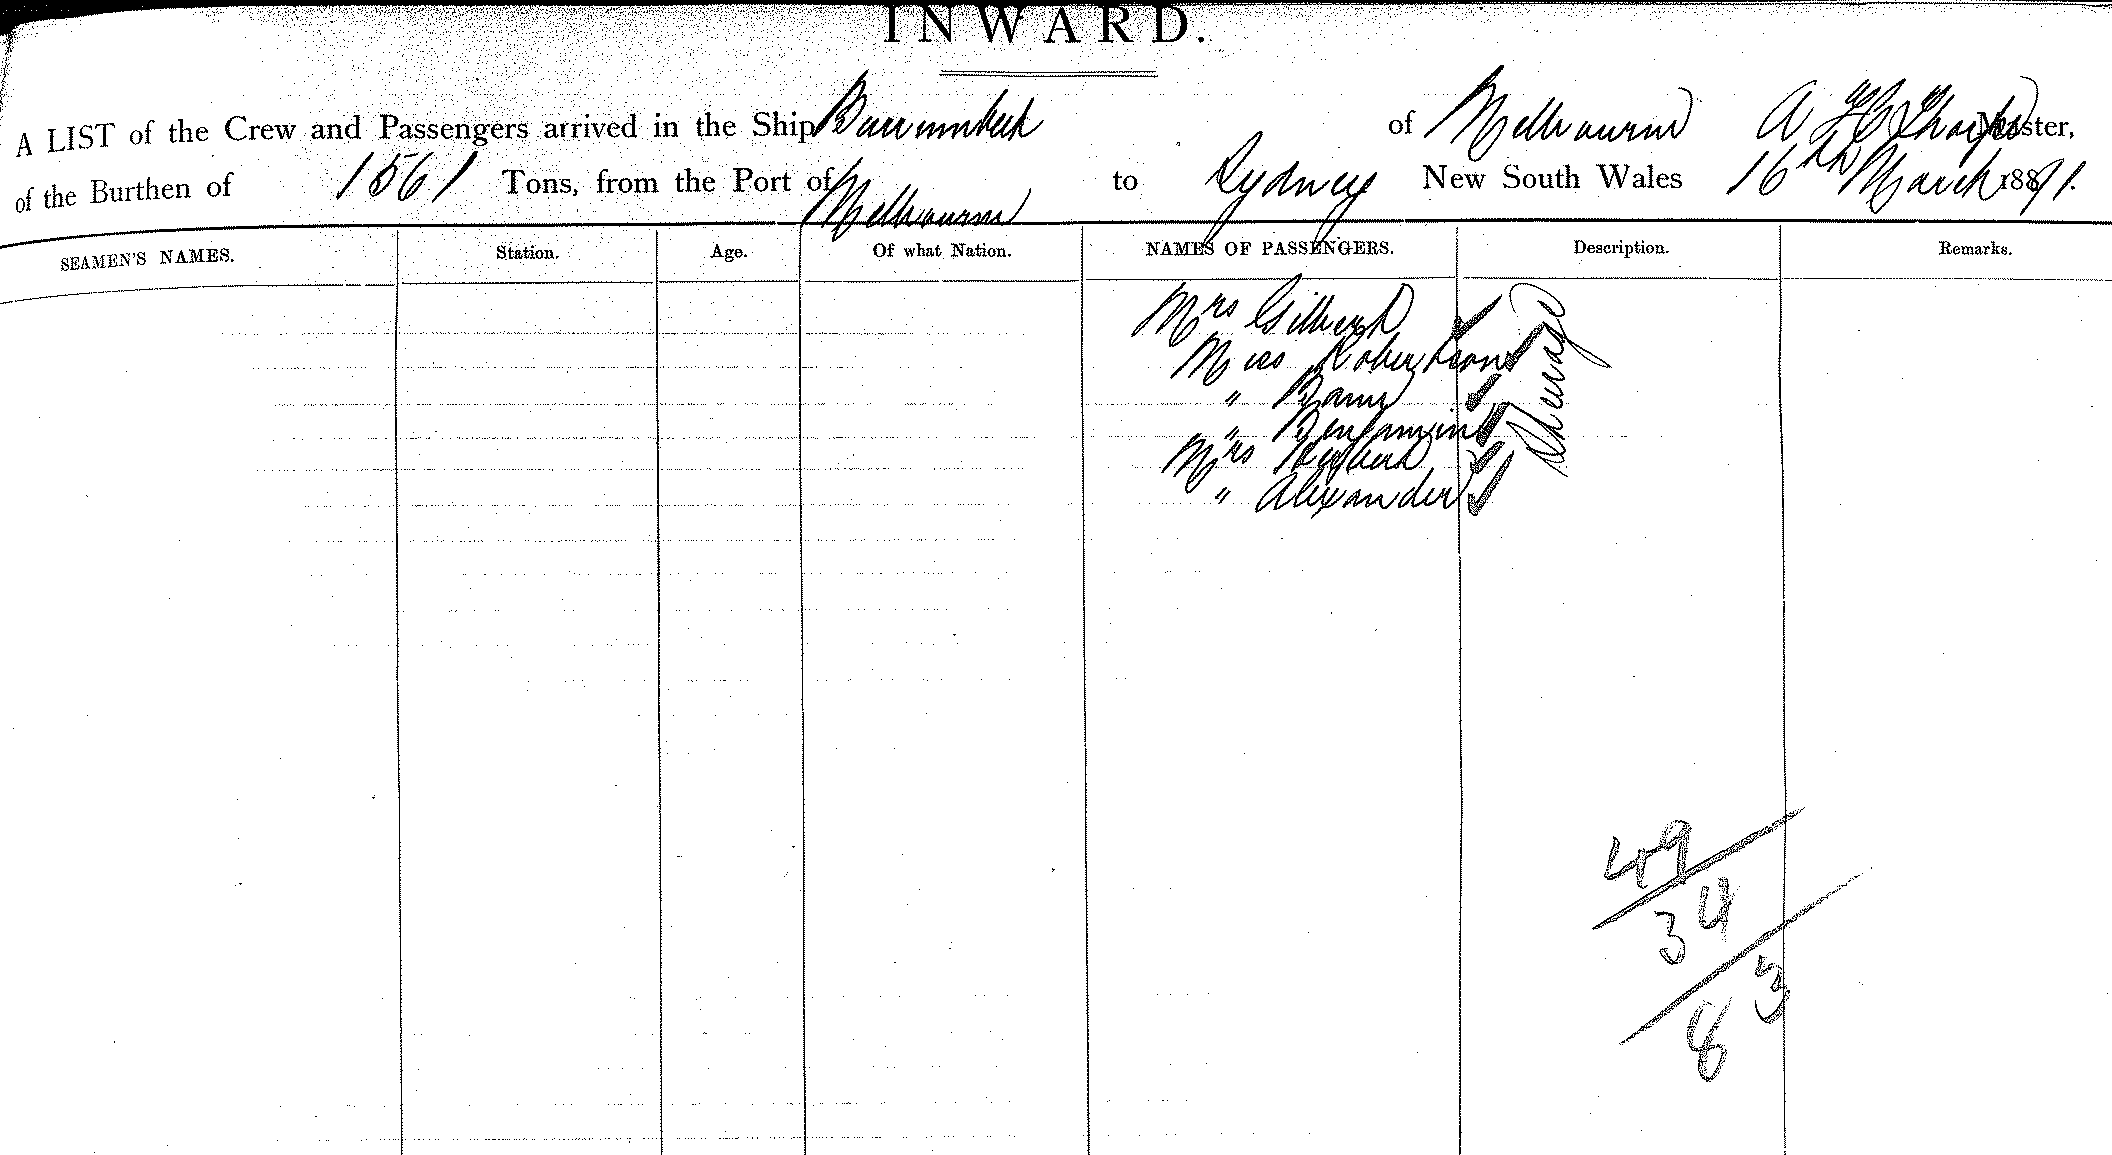 INWARD.
A LIST of the Crew and Passengers arrived in the Ship Burrumbeet of Melbourne A Thorpe Master,
of the Burthen of 1561 Tons, from the Port of Melbourne to Sydney New South Wales 16th March 1891.
SEAMEN'S NAMES. Station. Age. Of what Nation. NAMES OF PASSENGERS. Description. Remarks.
Mrs Gilbert
Miss Robertson
" 
" Benjamin
Mrs Herbert
" Alexander
Steerage
49
34
83